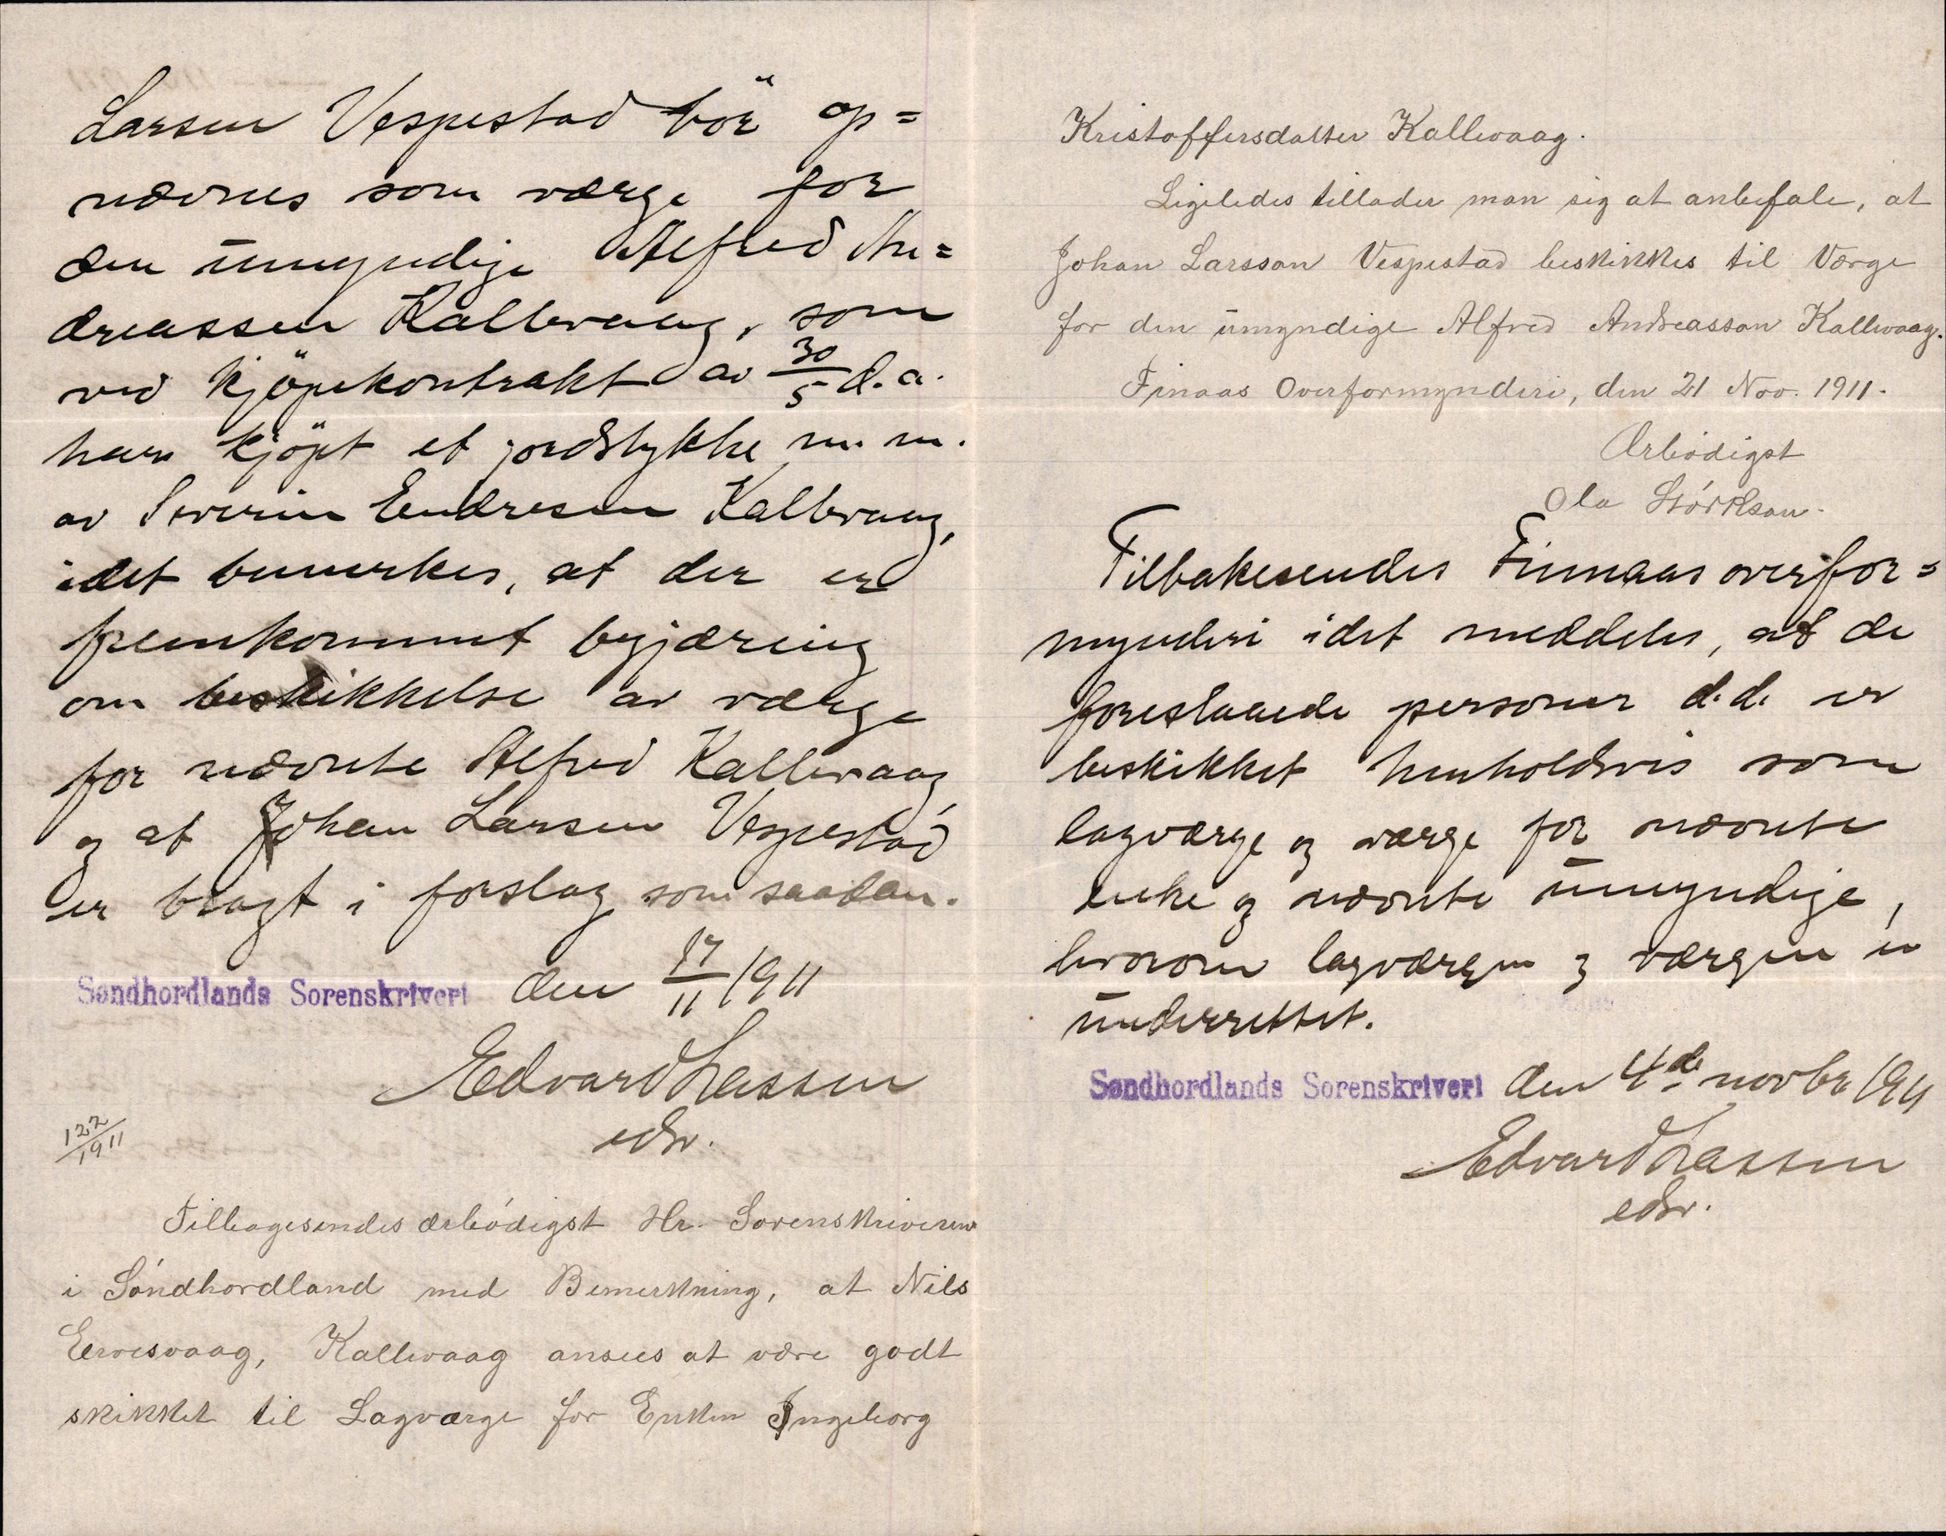 Larsen Vespestad bör op=
nævnes som værge for
den umyndige Alfred An=
dreassen Kallevaag, som
ved kjöpekontrakt av 30/5 d.a.
har kjöpt et jordstykke m.m.
av Severin Endresen Kallevaag,
idet bemerkes, at der er
fremkommet begjæring
om beskikkelse av værge
for nævnte Alfred Kallevaag
og at Johan Larsen Vespestad
er bragt i forslag som saadan.
Søndhordlands Sorenskriveri den 17/11 1911
Edvard Lassen
edsv.
122/1911
Tilbagesendes ærbódigst Hr. Sorenskriveren
i Sóndhordland med Bemerkning, at Nils
Eervesvaag, Kallevaag ansees at være godt
skikket til Lagværge for Enken Ingeborg
Kristoffersdatter Kallevaag.
Ligeledes tillader man sig at anbefale, at
Johan Larsson Vespestad beskikkes til Værge
for den umyndige Alfred Andreasson Kallevaag.
Finaas Overformynderi, den 21 Nov. 1911.
Ærbódigst
Ola Stórkson.
Tilbakesendes Finnaas overfor=
mynderi idet meddeles, at de
foreslaaede personer d.d. er
beskikket henholdsvis som
lagværge og værge for nævnte
enke og nævnte umyndige,
hvorom lagværgen og værgen er
underrettet.
Søndhordlands Sorenskriveri den 4de novbr 1911
Edvard Lassen
edsv.